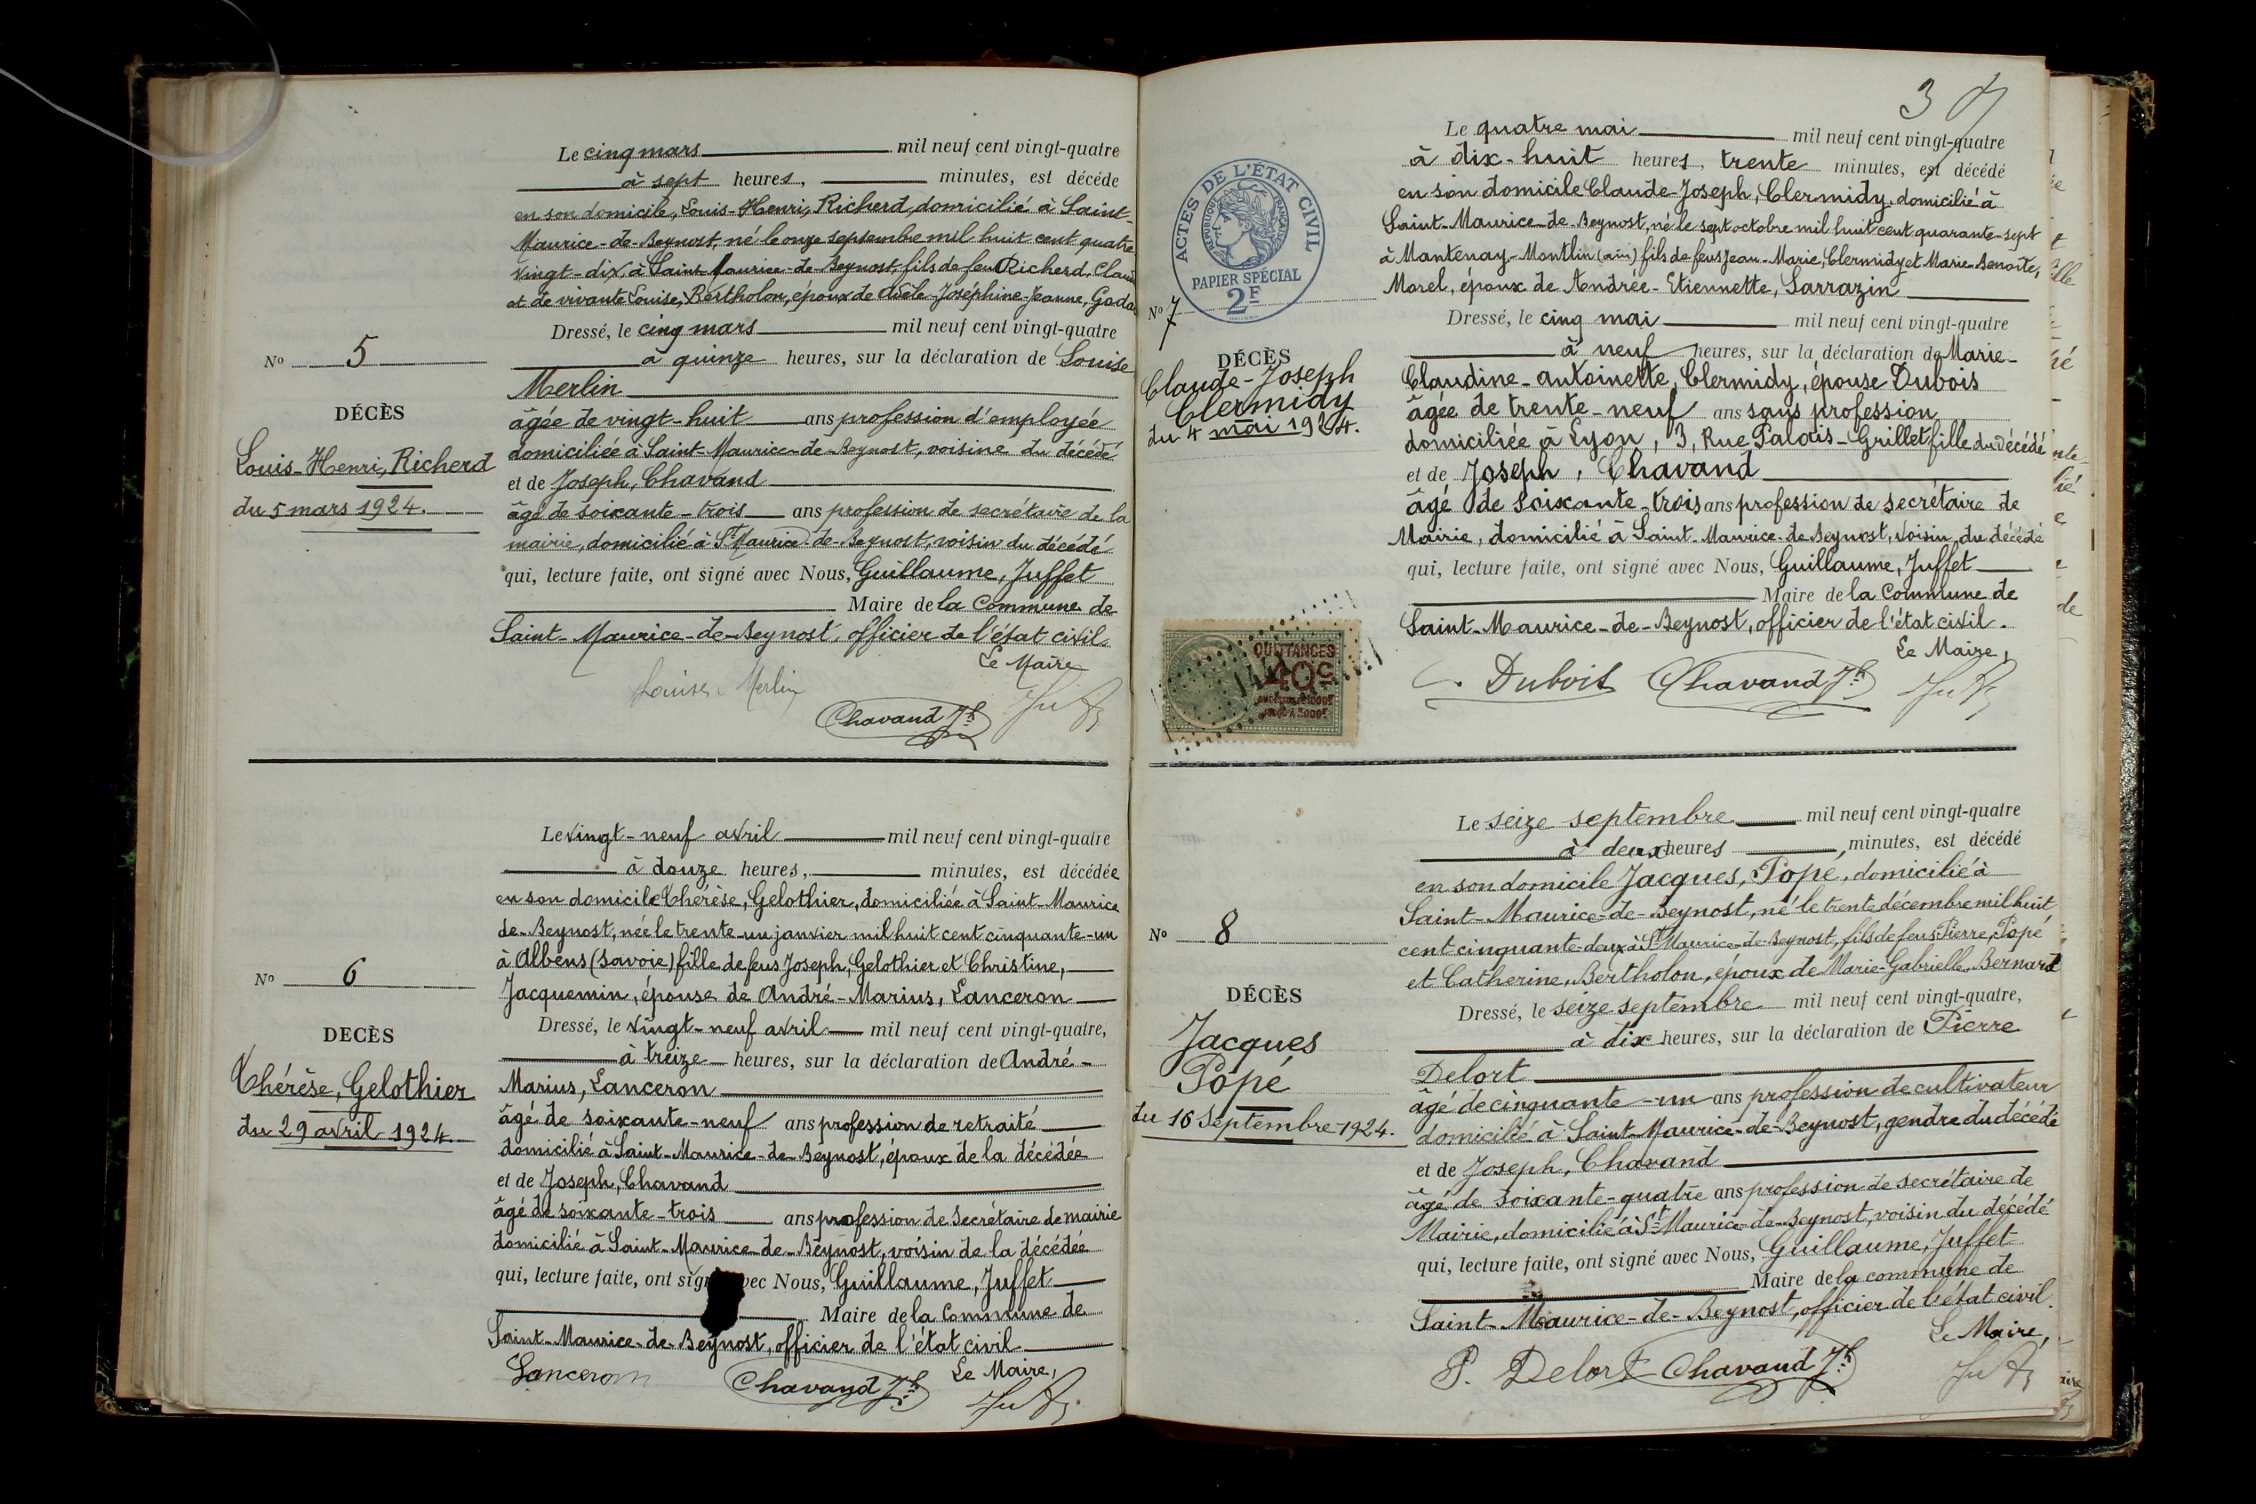 Le cinq mars mil neuf cent vingt-quatre
à sept heures, minutes, est décédé
en son domicile, Louis-Henri, Richerd, domicilié à Saint-
Maurice-de-Beynost, né le onze septembre mil huit cent quatre
vingt-dix, à Saint-Maurice-de-Beynost, fils de feu Richerd, Clau
et de vivante Louise, Bertholon, époux de Adèle-Joséphine-Jeanne, Goda
Dressé, le cinq mars mil neuf cent vingt-quatre
à quinze heures, sur la déclaration de Louise
Merlin
âgée de vingt-huit ans profession d'employée
domiciliée à Saint-Maurice-de-Beynost, voisine du décédé
et de Joseph, Chavand
âgé de soixante-trois ans profession de secrétaire de la
mairie, domicilié à St Maurice-de-Beynost, voisin du décédé
qui, lecture faite, ont signé avec Nous, Guillaume, Juffet
Maire de la Commune de
Saint-Maurice-de-Beynost, officier de l'état civil.
Le Maire
Louise Merlin
Chavand Jh
No 5
DÉCÈS
Louis-Henri, Richerd
du 5 mars 1924.
Le vingt-neuf avril mil neuf cent vingt-quatre
à douze heures, minutes, est décédée
en son domicile Thérèse, Gelothier, domiciliée à Saint-Maurice
de-Beynost, née le trente-un janvier mil huit cent cinquante-un
à Albens (Savoie) fille de feus Joseph, Gelothier et Christine,
Jacquemin, épouse de André-Marius, Lanceron
Dressé, le vingt-neuf avril mil neuf cent vingt-quatre,
à treize heures, sur la déclaration de André-
Marius, Lanceron
âgé de soixante-neuf ans profession de retraité
domicilié à Saint-Maurice-de-Beynost, époux de la décédée
et de Joseph, Chavand
âgé de soixante-trois ans profession de Secrétaire de mairie
domicilié à Saint-Maurice-de-Beynost, voisin de la décédée
qui, lecture faite, ont sig vec Nous, Guillaume, Juffet
Maire de la Commune de
Saint-Maurice-de-Beynost, officier de l'état civil
Le Maire,
Lanceron
Chavand Jh
No 6
DECÈS
Thérèse, Gelothier
du 29 avril 1924
3
Le quatre mai mil neuf cent vingt-quatre
à dix-huit heures, trente minutes, est décédé
en son domicile Claude-Joseph, Clermidy, domicilié à
Saint-Maurice-de-Beynost, né le sept octobre mil huit cent quarante-sept
à Mantenay-Montlin (ain) fils de feus Jean-Marie, Clermidy et Marie-Benoite,
Morel, époux de Andrée-Etiennette, Sarrazin
Dressé, le cinq mai mil neuf cent vingt-quatre
à neuf heures, sur la déclaration de Marie-
Claudine-antoinette, Clermidy, épouse Dubois
âgée de trente-neuf ans sans profession
domiciliée à Lyon, 3, Rue Palais-Grillet, fille du décédé
et de Joseph, Chavand
âgé de soixante-trois ans profession de secrétaire de
Mairie, domicilié à Saint-Maurice-de-Beynost, voisin du décédé
qui, lecture faite, ont signé avec Nous, Guillaume, Juffet
Maire de la Commune de
Saint-Maurice-de-Beynost, officier de l'état civil.
Le Maire,
Dubois
Chavand Jh
ACTES DE L'ÉTAT CIVIL
RÉPUBLIQUE FRANÇAISE
PAPIER SPÉCIAL
2F
No 7
DÉCÈS
Claude-Joseph
Clermidy
du 4 mai 1924.
QUITTANCES
40c
Le seize septembre mil neuf cent vingt-quatre
à deux heures minutes, est décédé
en son domicile Jacques, Popé, domicilié à
Saint-Maurice-de-Beynost, né le trente décembre mil huit
cent cinquante-deux à St Maurice-de-Beynost, fils de feus Pierre, Popé
et Catherine, Bertholon, époux de Marie-Gabrielle, Bernard
Dressé, le seize septembre mil neuf cent vingt-quatre,
à dix heures, sur la déclaration de Pierre
Delort
âgé de cinquante-un ans profession de cultivateur
domicilié à Saint-Maurice-de-Beynost, gendre du décédé
et de Joseph, Chavand
âgé de soixante-quatre ans profession de secrétaire de
Mairie, domicilié à St Maurice-de-Beynost, voisin du décédé
qui, lecture faite, ont signé avec Nous, Guillaume, Juffet
Maire de la commune de
Saint-Maurice-de-Beynost, officier de l'état civil.
Le Maire,
P. Delort
Chavand Jh
No 8
DÉCÈS
Jacques
Popé
du 16 Septembre 1924.